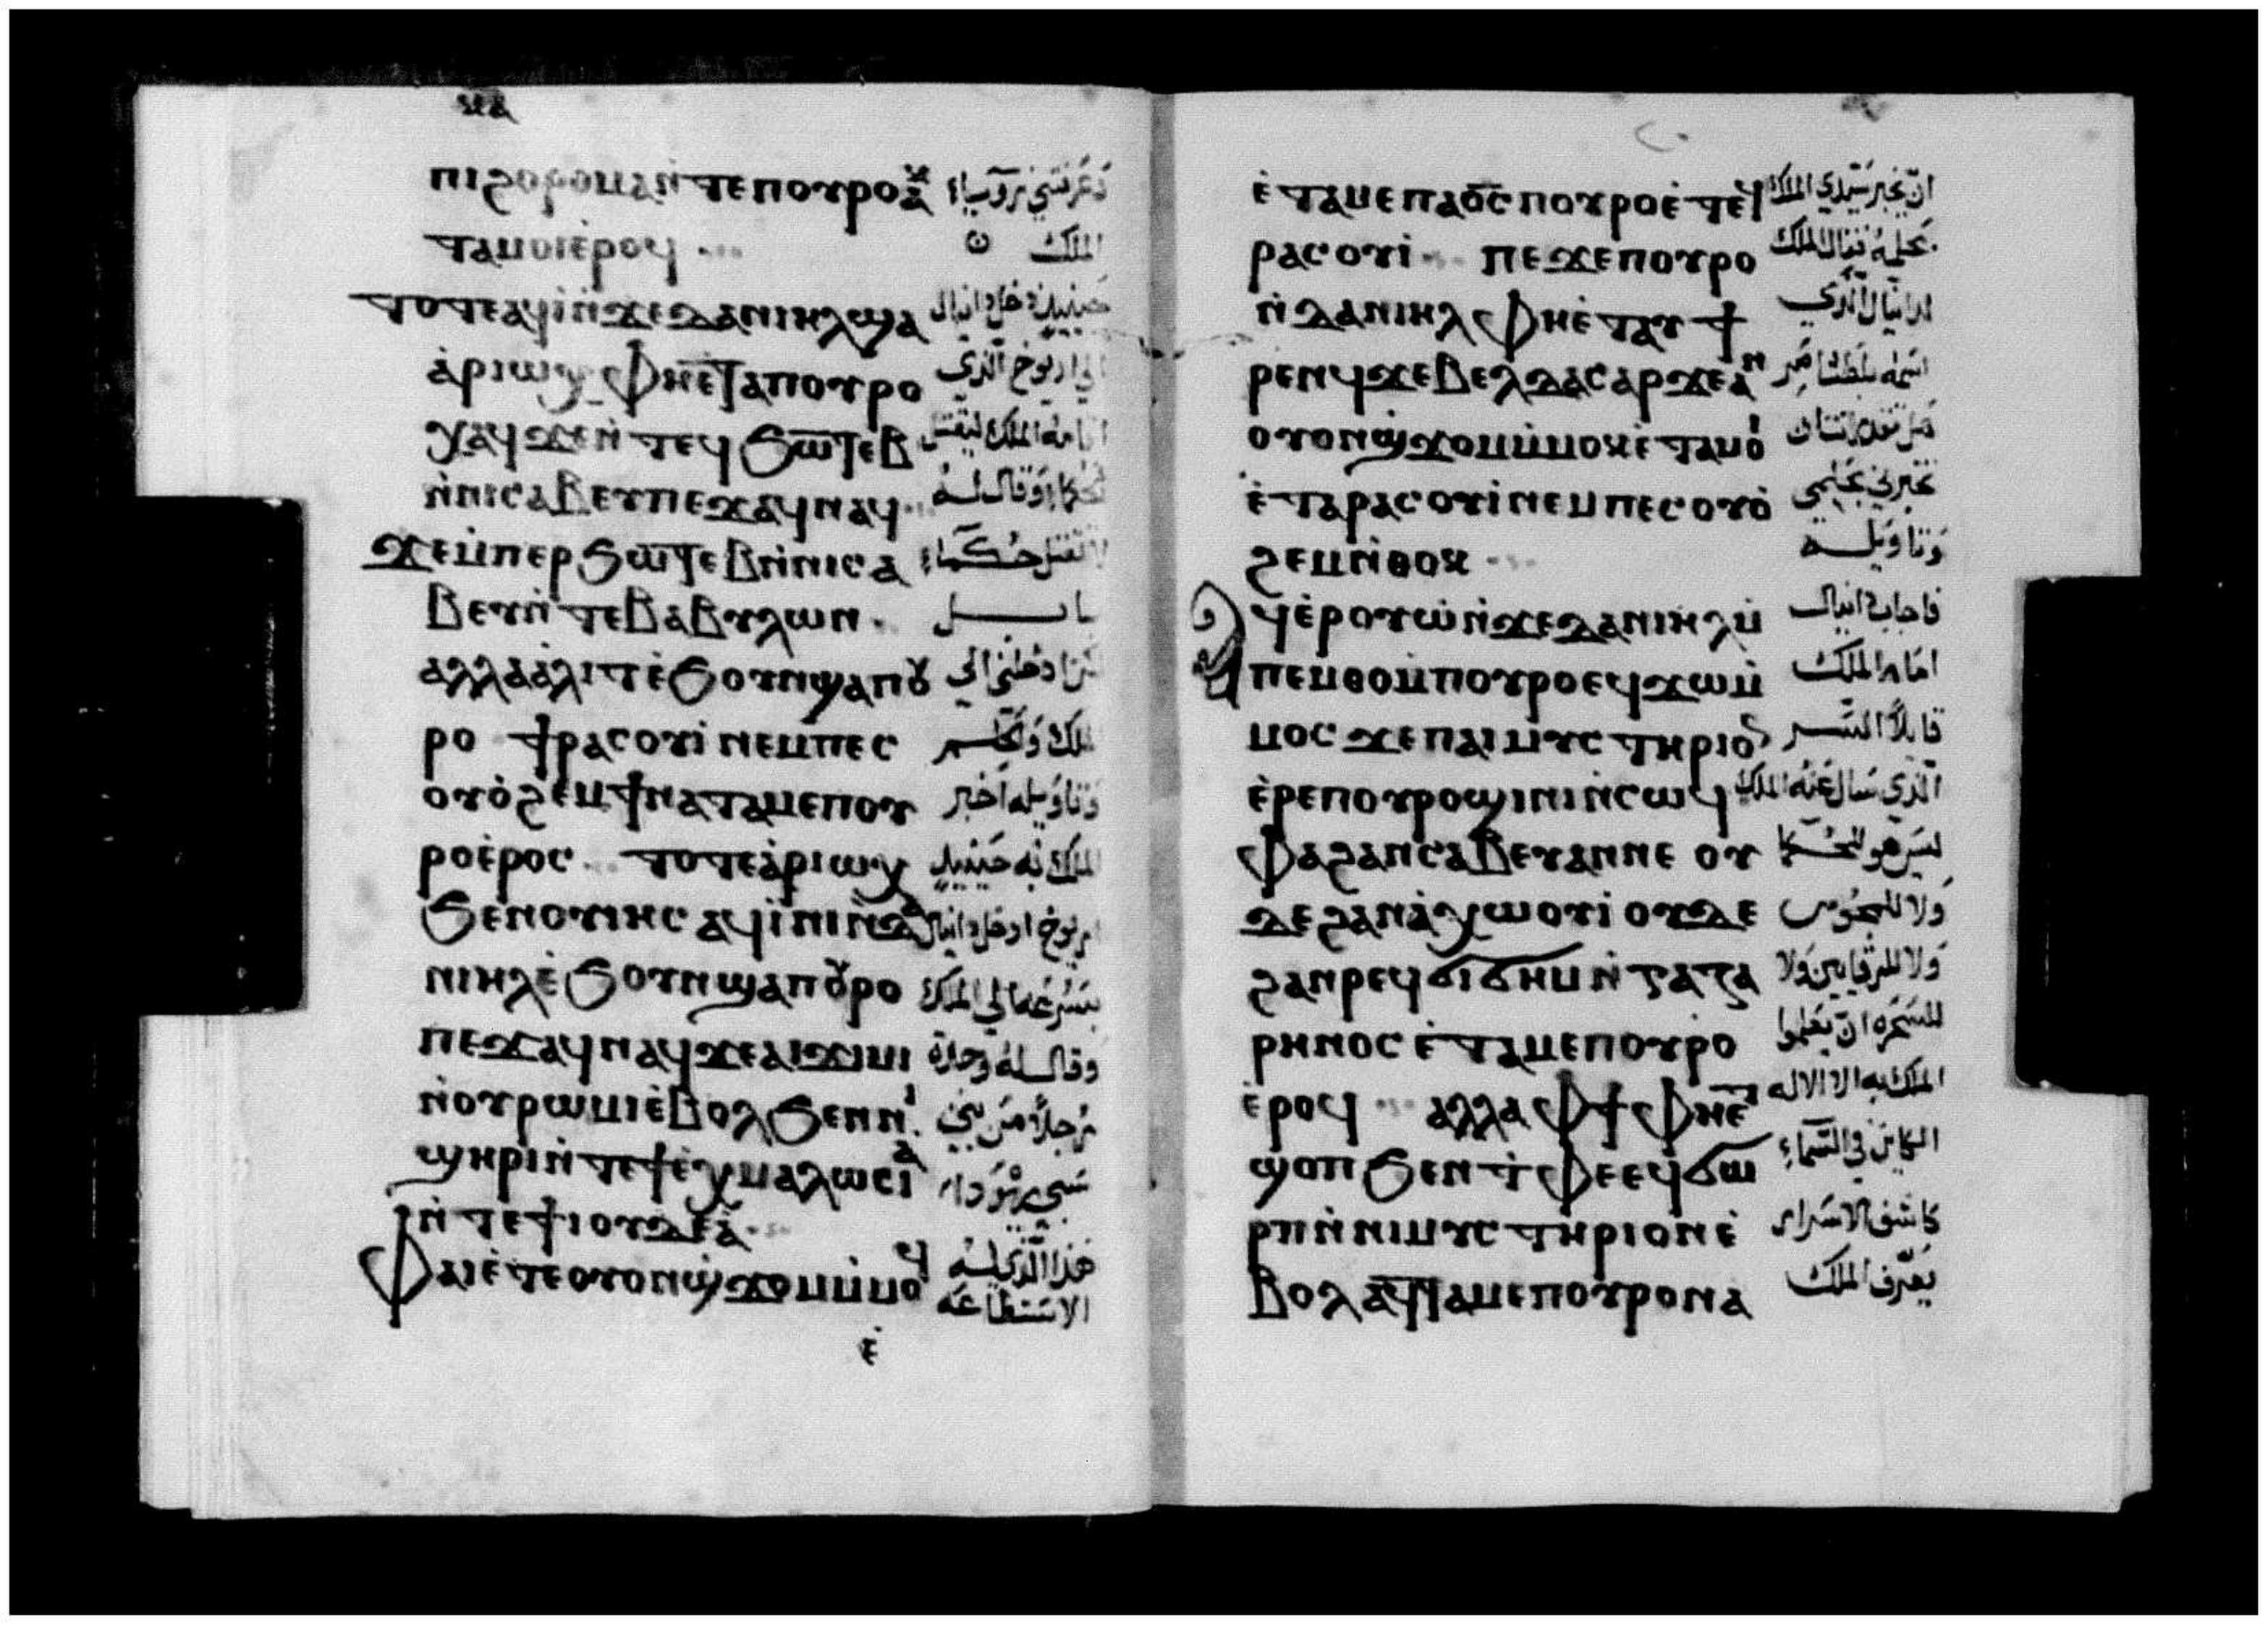 ⲡⲓϩⲟⲣⲟⲙⲁ ⲛ̀ⲧⲉ ⲡⲟⲩⲣⲟ ⲁⲕ
ⲧⲁⲙⲟⲓ ⲉ̀ⲣⲟϥ
الملك
ⲧⲟⲧⲉ ⲁϥⲓ̀ ⲛ̀ϫⲉ ⲇⲁⲛⲓⲏⲗ ϣⲁ
حينيذ دخل دانيال
ⲁ̀ⲣⲓⲱⲭ ⲫⲏⲉ̀ⲧⲁ ⲡⲟⲩⲣⲟ
الي اريوخ الذي
ⲭⲁϥ ϫⲉ ⲛ̀ⲧⲉϥϧⲱⲧⲉⲃ
اقامه الملك ليقتل
ⲛ̀ⲛⲓⲥⲁⲃⲉⲩ ⲡⲉϫⲁϥ ⲛⲁϥ
الحكماء وقال له
ϫⲉ ⲙ̀ⲡⲉⲣϧⲱⲧⲉⲃ ⲛ̀ⲛⲓⲥⲁ
لا تقتل حكماء
ⲃⲉⲩ ⲛ̀ⲧⲉ ⲃⲁⲃⲩⲗⲱⲛ
بابل
ⲁⲗⲗⲁ ⲁ̀ⲗⲓⲧ ⲉ̀ϧⲟⲩⲛ ϣⲁ ⲡⲟⲩ
ادخلني الي
ⲣⲟ ϯⲣⲁⲥⲟⲩⲓ̀ ⲛⲉⲙ ⲡⲉⲥ
الملك
ⲟⲩⲟ̀ϩⲉⲙ ϯⲛⲁⲧⲁⲙⲉ ⲡⲟⲩ
وتاويله اخبر
ⲣⲟ ⲉ̀ⲣⲟⲥ ⲧⲟⲧⲉ ⲁ̀ⲣⲓⲱⲭ
الملك به حينيذ
ϧⲉⲛ ⲟⲩⲓⲏⲥ ⲁϥⲓ̀ⲛⲓ ⲛ̀ⲇⲁ
اريوخ ادخل دانيال
ⲛⲓⲏⲗ ⲉ̀ϧⲟⲩⲛ ϣⲁ ⲡⲟⲩⲣⲟ
بسرعه الي الملك
ⲡⲉϫⲁϥ ⲛⲁϥ ϫⲉ ⲁⲓϫⲓⲙⲓ
وقال له وجدت
ⲛ̀ⲟⲩⲣⲱⲙⲓ ⲉ̀ⲃⲟⲗ ϧⲉⲛ ⲛⲓ
رجلًا من بني
ϣⲏⲣⲓ ⲛ̀ⲧⲉ ϯⲉ̀ⲭⲙⲁⲗⲱⲥⲓⲁ
سبي يهودا
ⲛ̀ⲧⲉ ϯⲓⲟⲩⲇⲉⲁ̀
ⲫⲁⲓ ⲉ̀ⲧⲉ ⲟⲩⲟⲛ ϣ̀ϫⲟⲙ ⲙ̀ⲙⲟϥ
هذا الذي له
الاستطاعه
ⲉ̀
ⲉ̀ⲧⲁⲙⲉ ⲡⲁⲟ̅ⲥ̅ ⲡⲟⲩⲣⲟ ⲉ̀ⲧⲉϥ
ان يخبر سيدي الملك
ⲣⲁⲥⲟⲩⲓ̀ ⲡⲉϫⲉ ⲡⲟⲩⲣⲟ
بحلمه فقال الملك
ⲛ̀ⲇⲁⲛⲓⲏⲗ ⲫⲏⲉ̀ⲧⲁⲩϯ
لدانيال الذي
ⲣⲉⲛϥ ϫⲉ ⲃⲉⲗⲇⲁⲥⲁⲣ ϫⲉ ⲁⲛ
اسمه
ⲟⲩⲟⲛ ϣ̀ϫⲟⲙ ⲙ̀ⲙⲟⲕ ⲉ̀ⲧⲁⲙⲟⲓ
هل تقدر انت ان
ⲉ̀ⲧⲁⲣⲁⲥⲟⲩⲓ̀ ⲛⲉⲙ ⲡⲉⲥⲟⲩⲟ̀
تخبرني بحلمي
ϩⲉⲙ ⲛ̀ⲑⲟⲕ
وتاويله
ⲁϥⲉ̀ⲣⲟⲩⲱ̀ ⲛ̀ϫⲉ ⲇⲁⲛⲓⲏⲗ ⲙ̀
فاجاب دانيال
ⲡⲉⲙⲑⲟ ⲙ̀ⲡⲟⲩⲣⲟ ⲉϥϫⲱ ⲙ̀
امام الملك
ⲙⲟⲥ ϫⲉ ⲡⲁⲓⲙⲩⲥⲧⲏⲣⲓⲟⲛ
قايلًا السر
ⲉ̀ⲣⲉ ⲡⲟⲩⲣⲟ ϣⲓⲛⲓ ⲛ̀ⲥⲱϥ
الذي سال عنه الملك
ⲫⲁ ϩⲁⲛⲥⲁⲃⲉⲩ ⲁⲛ ⲛⲉ ⲟⲩ
ليس هو للحكما
ⲇⲉ ϩⲁⲛⲁ̀ϫⲱⲟⲩⲓ̀ ⲟⲩⲇⲉ
ولا للمجوس
ϩⲁⲛⲣⲉϥϭⲓϭⲏⲙ ⲛ̀ⲅⲁⲍⲁ
ولا للرقايين ولا
ⲣⲏⲛⲟⲥ ⲉ̀ⲧⲁⲙⲉ ⲡⲟⲩⲣⲟ
للسحره ان يعلموا
ⲉ̀ⲣⲟϥ ⲁⲗⲗⲁ ⲫϯ ⲫⲏⲉⲧ
الملك به الا الاله
ϣⲟⲡ ϧⲉⲛ ⲧ̀ⲫⲉ ⲉϥϭⲱ
الكاين في السماء
ⲣⲡ ⲛ̀ⲛⲓⲙⲩⲥⲧⲏⲣⲓⲟⲛ ⲉ̀
كاشف الاسرار
ⲃⲟⲗ ⲁϥⲧⲁⲙⲉ ⲡⲟⲩⲣⲟ ⲛⲁ
يعرف الملك